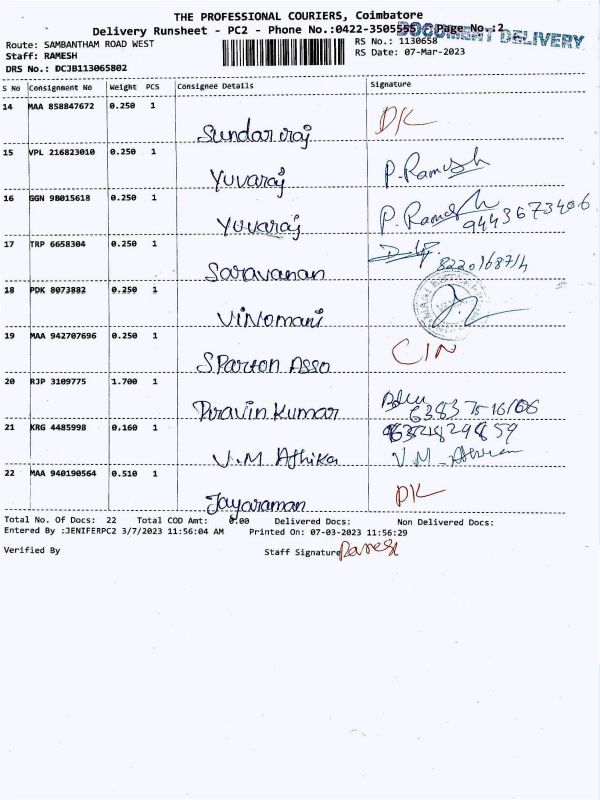 THE PROFESSIONAL COURIERS, Coimbatore
Delivery Runsheet - PC2 - Phone No.:0422-3505555 Page No.:2
DOCUMENT DELIVERY
Route: SAMBANTHAM ROAD WEST RS No.: 1130658
Staff: RAMESH RS Date: 07-Mar-2023
DRS No.: DCJB113065802
S No Consignment No Weight PCS Consignee Details Signature
14 MAA 858847672 0.250 1
Sundar raj DK
15 VPL 216823010 0.250 1
Yuvaraj P. Ramesh
16 GGN 98015618 0.250 1
Yuvaraj P. Ramesh
9443673406
17 TRP 6658304 0.250 1
Saravanan
18 PDK 8073882 0.250 1
Vinomani
19 MAA 942707696 0.250 1
Sparton Asso CIN
20 RJP 3109775 1.700 1
Piravin Kumar
21 KRG 4485998 0.160 1
V.M Athika V.M
22 MAA 940190564 0.510 1
Jayaraman DK
Total No. Of Docs: 22 Total COD Amt: 0.00 Delivered Docs: Non Delivered Docs:
Entered By :JENIFERPC2 3/7/2023 11:56:04 AM Printed On: 07-03-2023 11:56:29
Verified By Staff Signature